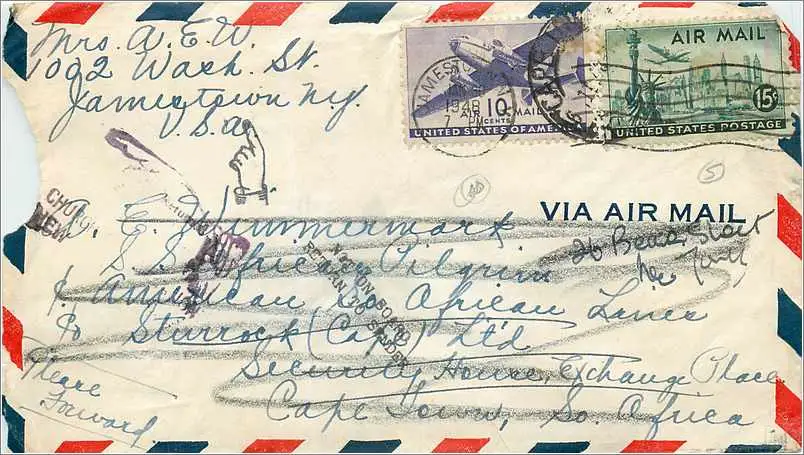 Mrs. A. E. W.
1092 Wash. St.
Jamestown N.Y.
U.S.A.
JAMESTO
1948
7 PM
10 CENTS
AIR MAIL
UNITED STATES OF AMERICA
CAPE
AIR MAIL
15¢
UNITED STATES POSTAGE
5
VIA AIR MAIL
NEW
E. Wimmermark
S.S. African Pilgrim
American So. African Lines
c/o Sturrock (Cape) Ltd
Security House, Exchange Place
Cape Town, So. Africa.
NOT ON BOARD
RETURN TO SENDER
Please
Forward